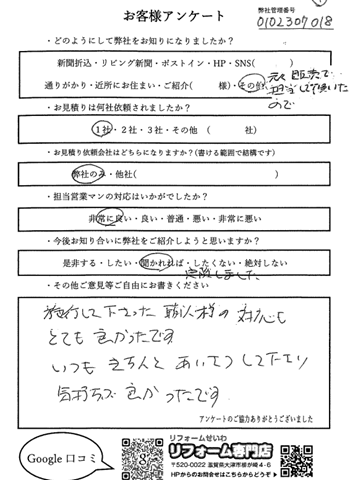 お客様アンケート
弊社管理番号
0102307018
・どのようにして弊社をお知りになりましたか？
新聞折込・リビング新聞・ポストイン・HP・SNS(　　　)
通りがかり・近所にお住まい・ご紹介(　　　様)・その他
担当して頂いた
ので
・お見積りは何社依頼されましたか？
1社・2社・3社・その他　(　　　社)
・お見積り依頼会社はどちらになりますか？(書ける範囲で結構です)
弊社のみ・他社(　　　)
・担当営業マンの対応はいかがでしたか？
非常に良い・良い・普通・悪い・非常に悪い
・今後お知り合いに弊社をご紹介しようと思いますか？
是非する・したい・聞かれれば・したくない・絶対しない
しました
・その他ご意見等ご自由にお書きください
施行して下さった 職人様の 対応も
とても 良かったです
いつも きちんと あいさつ して下さり
気持ちが 良かったです
アンケートのご協力ありがとうございました
Google 口コミ
リフォームせいわ
リフォーム専門店
〒520-0022 滋賀県大津市柳が崎4-6
HPからのお問合せはこちらからどうぞ